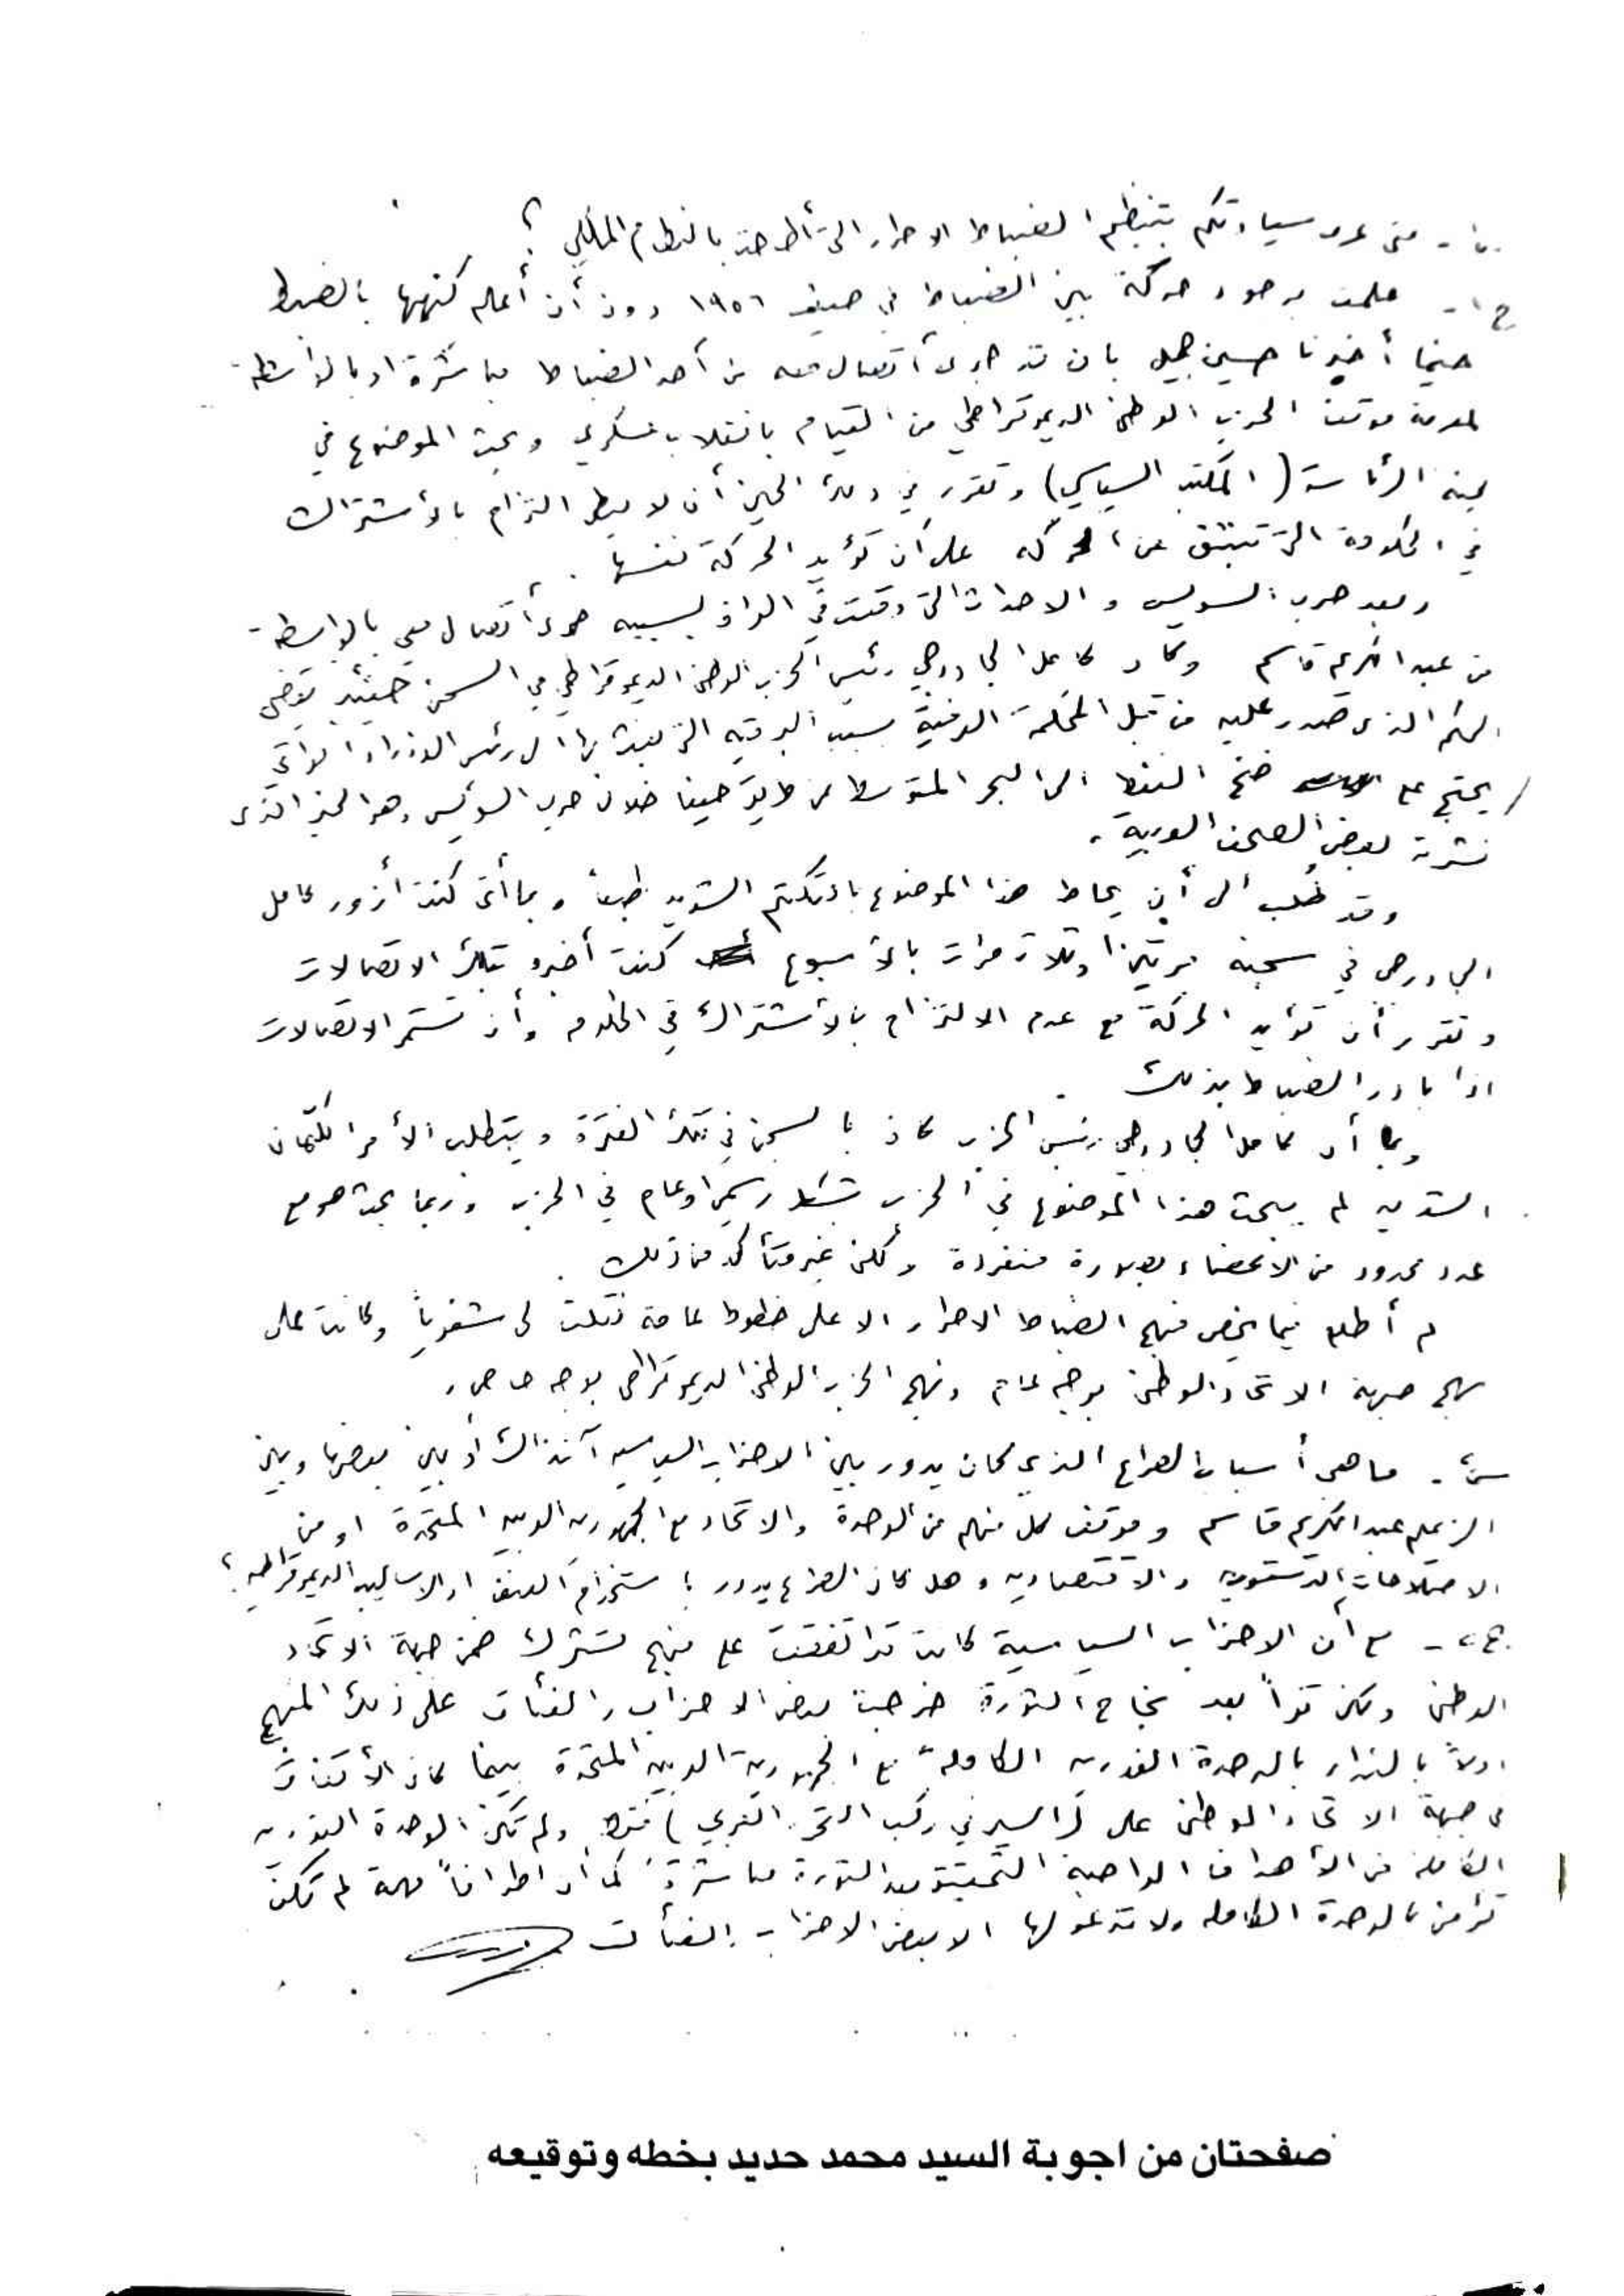 س١ـ متى عرف سيادتكم بتنظيم الضباط الاحرار التي أطاحت بالنظام الملكي ؟
ج١ـ علمت بوجود حركة بين الضباط في صيف ١٩٥٦ دون أن أعلم كنهها بالضبط
حينما أخبرنا حسين جميل بان قد جرى أتصال معه من أحد الضباط مباشرة او بالواسطة
لمعرفة موقف الحزب الوطني الديموقراطي من القيام بانقلاب عسكري وبحث الموضوع في
لجنة الرئاسة (المكتب السياسي) وتقرر في ذلك الحين أن لا يعطى التزام بالأشتراك
في الحكومة التي تنبثق عن الحركه على أن تؤيد الحركة نفسها .
وبعد حرب السويس والاحداث التي وقعت في العراق بسببه جرى أتصال معي بالواسطة
من عبد الكريم قاسم وكان كامل الجادرجي رئيس الحزب الوطني الديموقراطي في السجن حينئذ يقضي
الحكم الذي صدر عليه من قبل المحكمة العرفية بسبب البرقيه التي بعث بها الى رئيس الوزراء
يحتج على ضخ النفط الى البحر المتوسط عن طريق حيفا خلال حرب السويس وهو الخبر الذي
نشرته بعض الصحف السورية .
وقد طلب الى أن يحاط هذا الموضوع بالتكتم الشديد طبعاً وبما أني كنت أزور كامل
الجادرجي في سجنه مرتين او ثلاث مرات بالأسبوع كنت أخبره بتلك الاتصالات
وتقرر أن تؤيد الحركة مع عدم الالتزام بالأشتراك في الحكومه وأن تستمر الاتصالات
اذا بادر الضباط بذلك .
وبما أن كامل الجادرجي رئيس الحزب كان بالسجن في تلك الفترة ويتطلب الأمر الكتمان
الشديد لم يبحث هذا الموضوع في الحزب بشكل رسمي او عام في الحزب وربما بحث هو مع
عدد محدود من الاعضاء بصورة منفردة ولكني غير متأكد من ذلك .
لم أطلع فيما يخص منهج الضباط الاحرار الا على خطوط عامة نقلت لي شفوياً وكانت على
نهج جبهة الاتحاد الوطني بوجه عام ونهج الحزب الوطني الديموقراطي بوجه خاص .
س٢ـ ما هي أسباب الصراع الذي كان يدور بين الاحزاب السياسيه آنذاك أو بين بعضها وبين
الزعيم عبد الكريم قاسم وموقف كل منهم من الوحدة والاتحاد مع الجمهوريه العربيه المتحدة او من
الاصلاحات الدستوريه والاقتصاديه وهل كان الصراع يدور باستخدام العنف او الاساليب الديموقراطيه ؟
ج٢ـ مع أن الاحزاب السياسية كانت قد اتفقت على منهج مشترك ضمن جبهة الاتحاد
الوطني ولكن فوراً بعد نجاح الثورة خرجت بعض الاحزاب والفئات على ذلك المنهج
اولاً بالنداء بالوحدة الفوريه الكاملة مع الجمهورية العربيه المتحدة بينما كان الأتفاق
في جبهة الاتحاد الوطني على (السير في ركب التحرر العربي) فقط ولم تكن الوحدة الفوريه
الكامله من الأهداف الواجبة التحقيق بعد الثورة مباشرة كما أن اطرافاً مهمة لم تكن
تؤمن بالوحدة الكامله ولا تدعو لها الا بعض الاحزاب والفئات
صفحتان من اجوبة السيد محمد حديد بخطه وتوقيعه